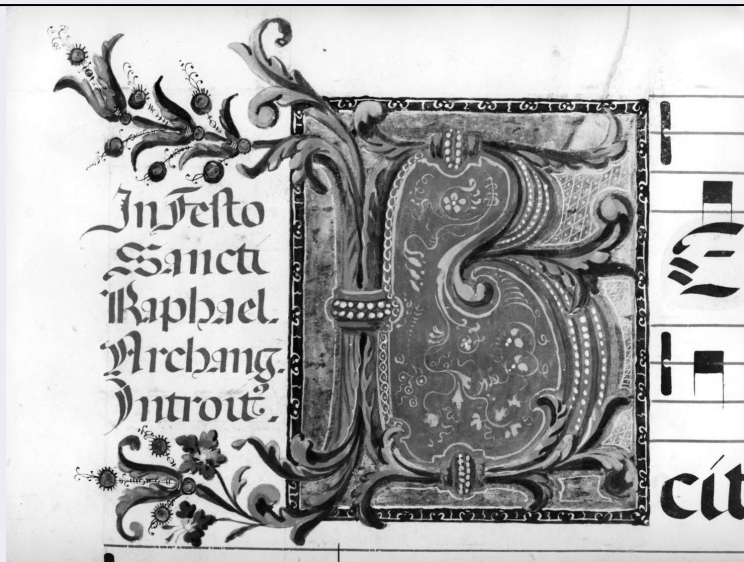 In Festo
Sancti
Raphael.
Archang.
Introit9.
B E
cít